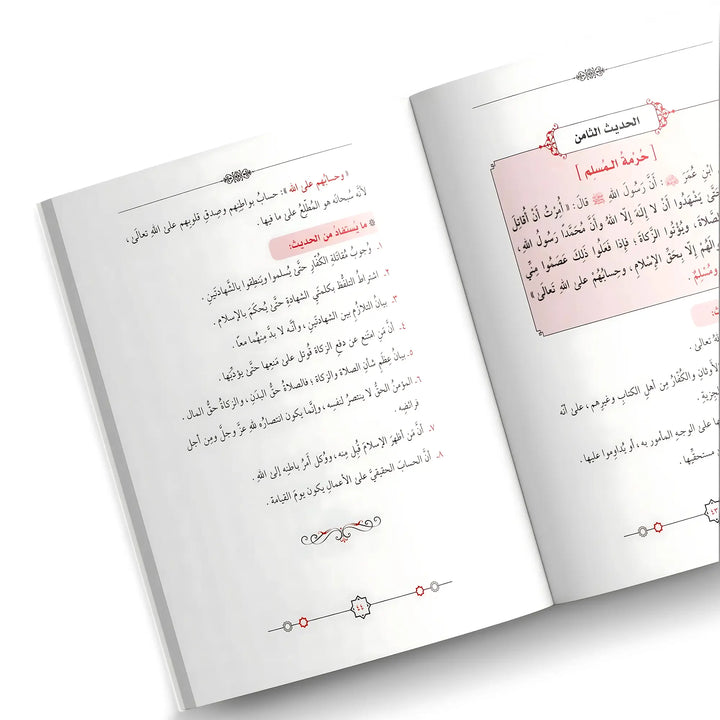 الحديث الثامن
[ حُرْمَةُ المُسلِم ]
ابْنِ عُمَرَ ﷺ أَنَّ رَسُولَ اللهِ ﷺ قَالَ: « أُمِرْتُ أَنْ أُقَاتِلَ
حَتَّى يَشْهَدُوا أَنْ لا إِلهَ إِلَّا اللهُ وَأَنَّ مُحَمَّدًا رَسُولُ اللهِ،
وَيُؤْتُوا الزَّكَاةَ ، فَإِذَا فَعَلُوا ذَلِكَ عَصَمُوا مِنِّي
إِلَّا بِحَقِّ الإِسْلَامِ، وَحِسَابُهُمْ عَلَى اللهِ تَعَالَى »
وَمُسْلِمٌ .
تعالى .
لأوثانِ والكُفَّارِ مِن أهلِ الكتابِ وغيرِهم ، على أنَّه
لجِزيةِ .
على الوجهِ المأمورِ به ، أو يُداوِموا عليها .
مستحقِّيها .
٤٣
« وحسابُهم على الله »: حسابُ بواطنِهم وصِدقِ قلوبِهم على اللهِ تعالى ،
لأنَّه سُبحانَه هو المُطَّلِعُ على ما فيها .
ما يُستفادُ من الحديث:
١. وُجوبُ مُقاتَلةِ الكُفَّارِ حتَّى يُسلموا ويَنطِقوا بالشَّهادتَينِ .
٢. اشتراطُ التلفُّظِ بكلمتَيِ الشهادةِ حتَّى يُحكَمَ بالإسلامِ .
٣. بيانُ التلازُمِ بين الشهادتَينِ ، وأنَّه لا بدَّ مِنهُما معًا .
٤. أنَّ مَنِ امتَنع عن دفعِ الزكاةِ قُوتِل على مَنعِها حتَّى يؤدِّيَها .
٥. بيانُ عِظَمِ شأنِ الصلاةِ والزكاةِ ؛ فالصلاةُ حقُّ البدَنِ ، والزكاةُ حقُّ المالِ .
٦. المؤمنُ الحقُّ لا ينتصرُ لنفسِه ، وإنَّما يكون انتصارُه للهِ عزَّ وجلَّ ومِن أجلِ
فرائضِه .
٧. أنَّ مَن أظهرَ الإسلامَ قُبِل مِنه ، ووُكِل أمرُ باطنِه إلى اللهِ .
٨. أنَّ الحسابَ الحقيقيَّ على الأعمالِ يكون يومَ القيامة .
٤٤